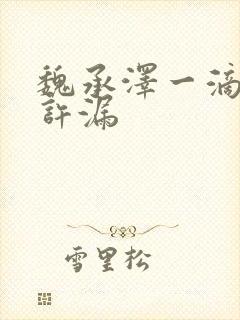 魏承澤一滴
許漏
雪里松